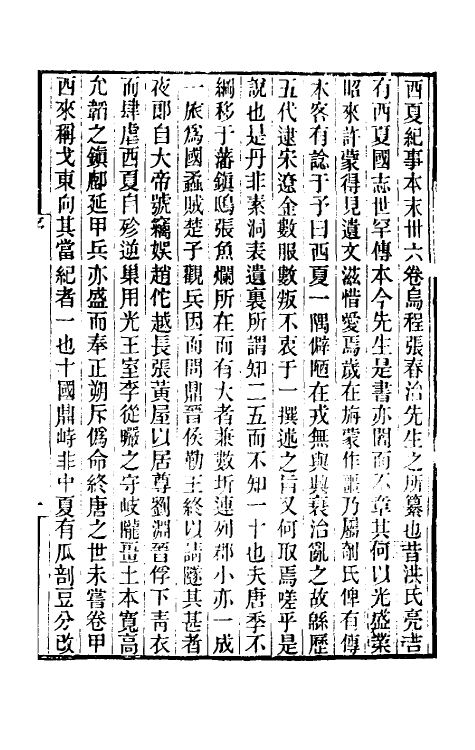 西夏紀事本末卅六卷烏程張春治先生之所纂也昔洪氏亮吉
有西夏國志世罕傳本今先生是書亦閟而不章其何以光盛業
昭來許蒙得見遺文滋惜愛焉歲在旃蒙作噩乃屬剞氏俾有傳
木客有諗于予曰西夏一隅僻陋在戎無與興衰治亂之故緜歷
五代逮宋遼金數服數叛不衷于一撰述之旨又何取焉嗟乎是
說也是丹非素洞表遺裏所謂知二五而不知一十也夫唐季不
綱移于藩鎮鴟張魚爛所在而有大者兼數圻連列郡小亦一成
一旅爲國蟊賊楚子觀兵因而問鼎晉侯勤王終以請隧其甚者
夜郎自大帝號竊娛趙佗越長張黃屋以居尊劉淵晉俘下靑衣
而肆虐西夏自殄逆巢用光王室李從曮之守岐隴畺土本寬高
允韜之鎮鄜延甲兵亦盛而奉正朔斥僞命終唐之世未嘗卷甲
西來稱戈東向其當紀者一也十國鼎峙非中夏有瓜剖豆分改
序
一